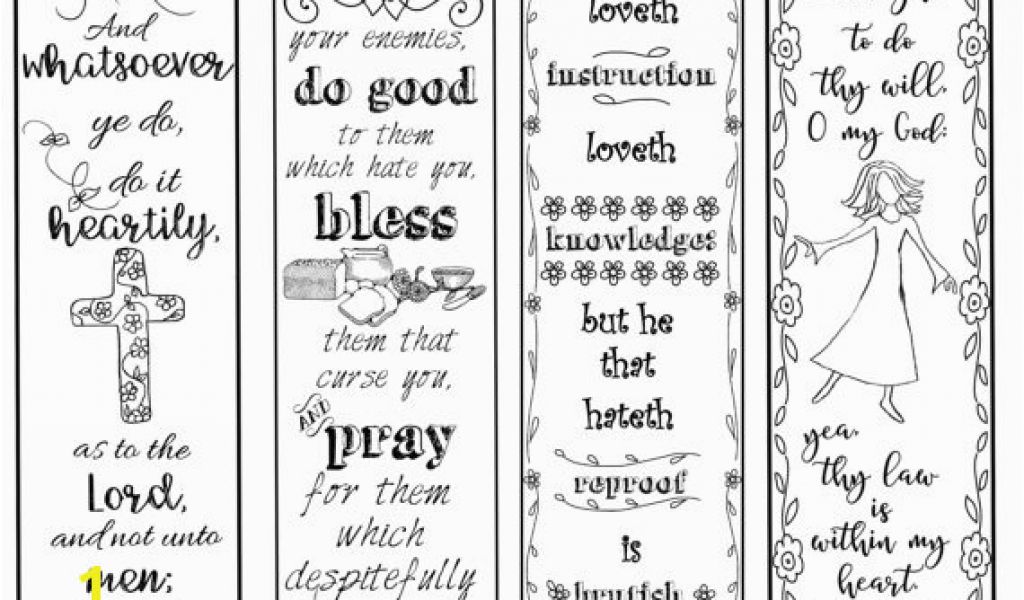 And
whatsoever
ye do,
do it
heartily,
as to the
Lord,
and not unto
men;
1
your enemies,
do good
to them
which hate you,
bless
them that
curse you,
AND
pray
for them
which
despitefully
loveth
instruction
loveth
knowledge:
but he
that
hateth
reproof
is
brutish
to do
thy will,
O my God:
yea,
thy law
is
within my
heart.